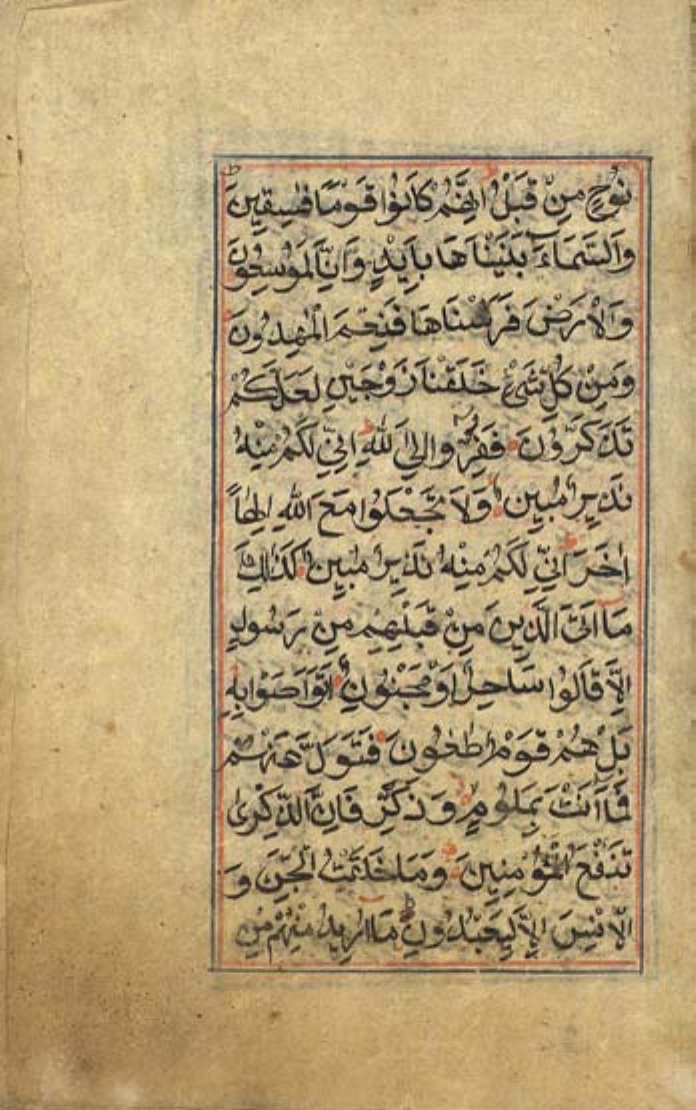 نُوْحٍ مِنْ قَبْلُ اِنَّهُمْ كَانُوْا قَوْمًا فٰسِقِيْنَ
وَالسَّمَآءَ بَنَيْنَاهَا بِاَيْدٍ وَاِنَّا لَمُوْسِعُوْنَ
وَالْاَرْضَ فَرَشْنَاهَا فَنِعْمَ الْمٰهِدُوْنَ
وَمِنْ كُلِّ شَيْءٍ خَلَقْنَا زَوْجَيْنِ لَعَلَّكُمْ
تَذَكَّرُوْنَ فَفِرُّوْا اِلَى اللّٰهِ اِنِّيْ لَكُمْ مِنْهُ
نَذِيْرٌ مُبِيْنٌ وَلَا تَجْعَلُوْا مَعَ اللّٰهِ اِلٰهًا
اٰخَرَ اِنِّيْ لَكُمْ مِنْهُ نَذِيْرٌ مُبِيْنٌ كَذٰلِكَ
مَا اَتَى الَّذِيْنَ مِنْ قَبْلِهِمْ مِنْ رَسُوْلٍ
اِلَّا قَالُوْا سَاحِرٌ اَوْ مَجْنُوْنٌ اَتَوَاصَوْا بِهٖ
بَلْ هُمْ قَوْمٌ طَاغُوْنَ فَتَوَلَّ عَنْهُمْ
فَمَا اَنْتَ بِمَلُوْمٍ وَذَكِّرْ فَاِنَّ الذِّكْرٰى
تَنْفَعُ الْمُؤْمِنِيْنَ وَمَا خَلَقْتُ الْجِنَّ وَ
الْاِنْسَ اِلَّا لِيَعْبُدُوْنِ مَا اُرِيْدُ مِنْهُمْ مِنْ